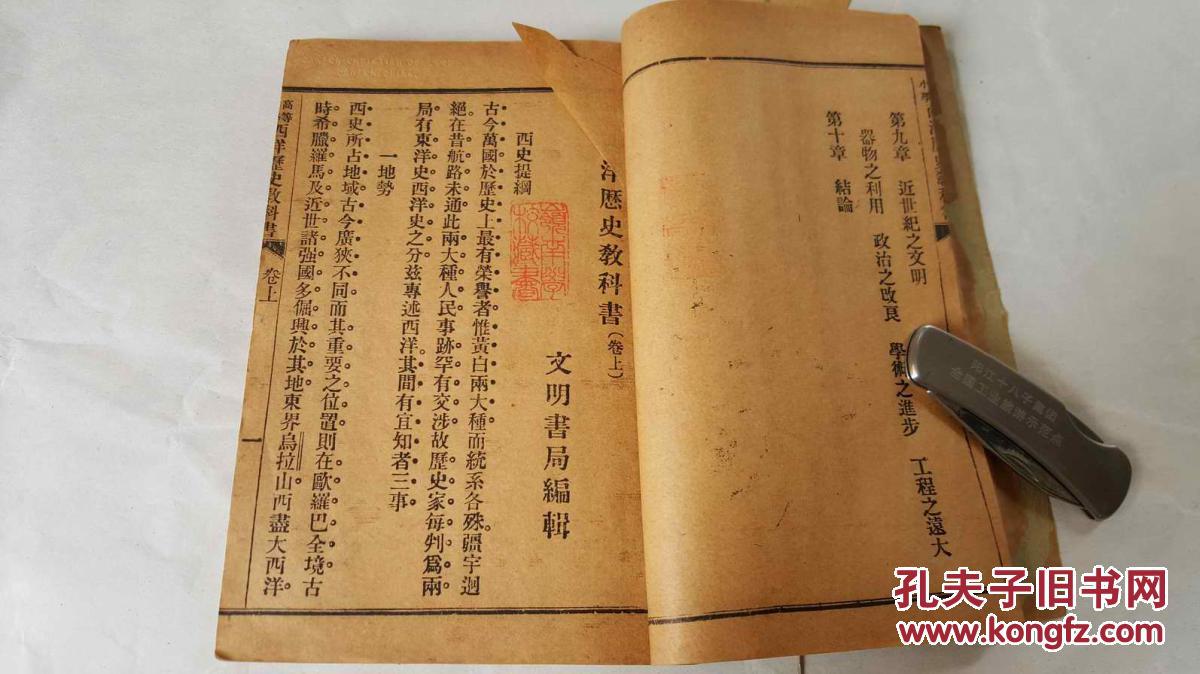 第九章　近世紀之文明
器物之利用　政治之改良　學術之進步　工程之遠大
第十章　結論
洋歷史教科書（卷上）
文明書局編輯
西史提綱
古今萬國於歷史上最有榮譽者惟黃白兩大種而統系各殊疆宇迥
絕在昔航路未通此兩大種人民事跡罕有交涉故歷史家每判爲兩
局有東洋史西洋史之分茲專述西洋其間有宜知者三事
一地勢
西史所占地域古今廣狹不同而其重要之位置則在歐羅巴全境古
時希臘羅馬及近世諸強國多倔興於其地東界烏拉山西盡大西洋
高等西洋歷史教科書
卷上
一
陽江十八子集團
全國工业旅游示范点
孔夫子旧书网
www.kongfz.com